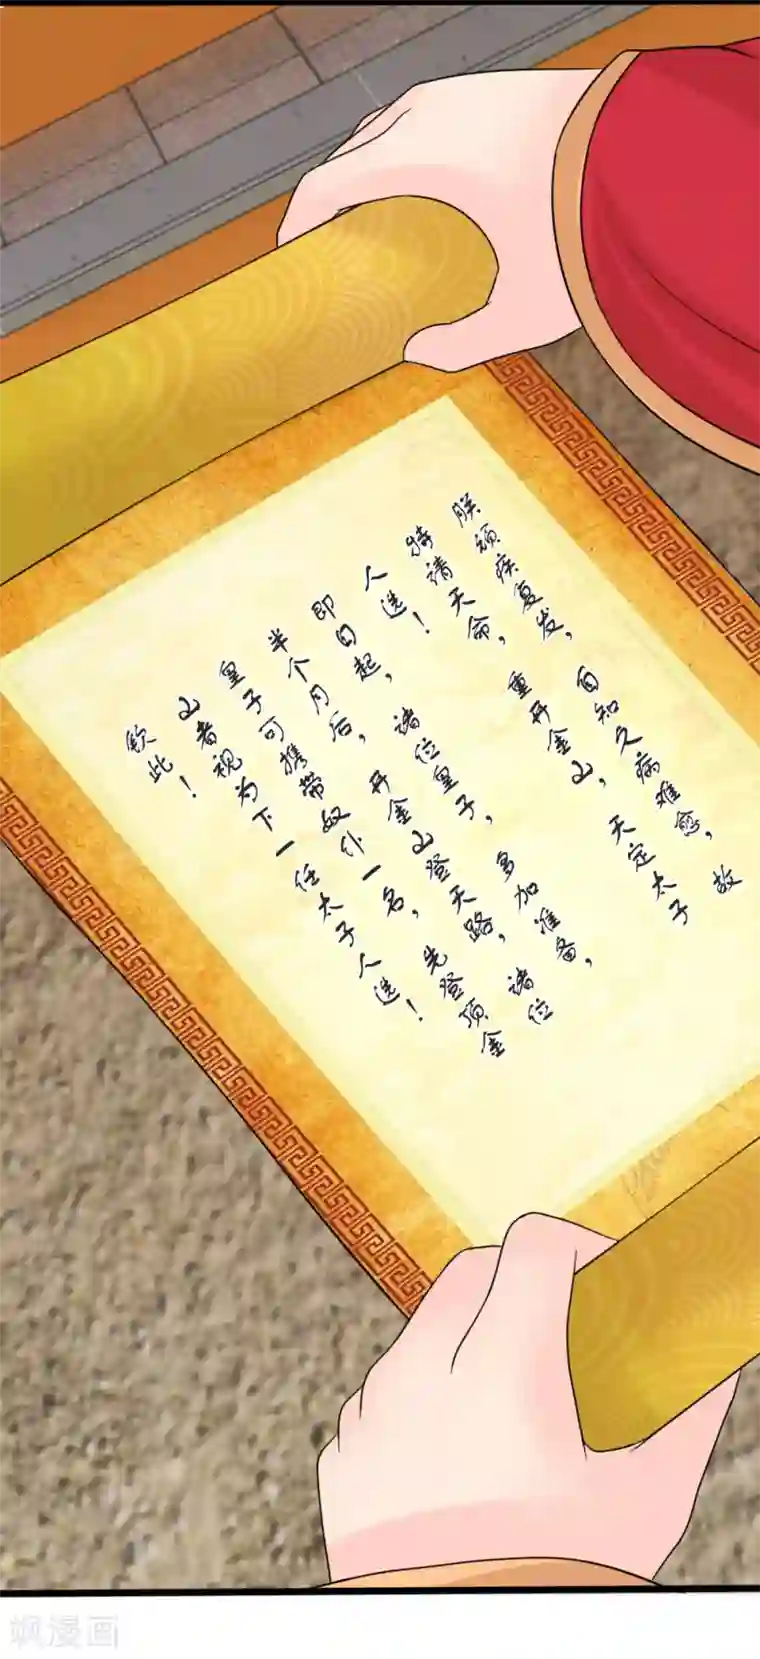 朕顽疾复发，自知久病难愈，故
特请天命，重开金山，天定太子
人选！
即日起，诸位皇子，多加准备，
半个月后，开金山登天路，诸位
皇子可携带奴仆一名，先登顶金
山者视为下一任太子人选！
钦此！
飒漫画